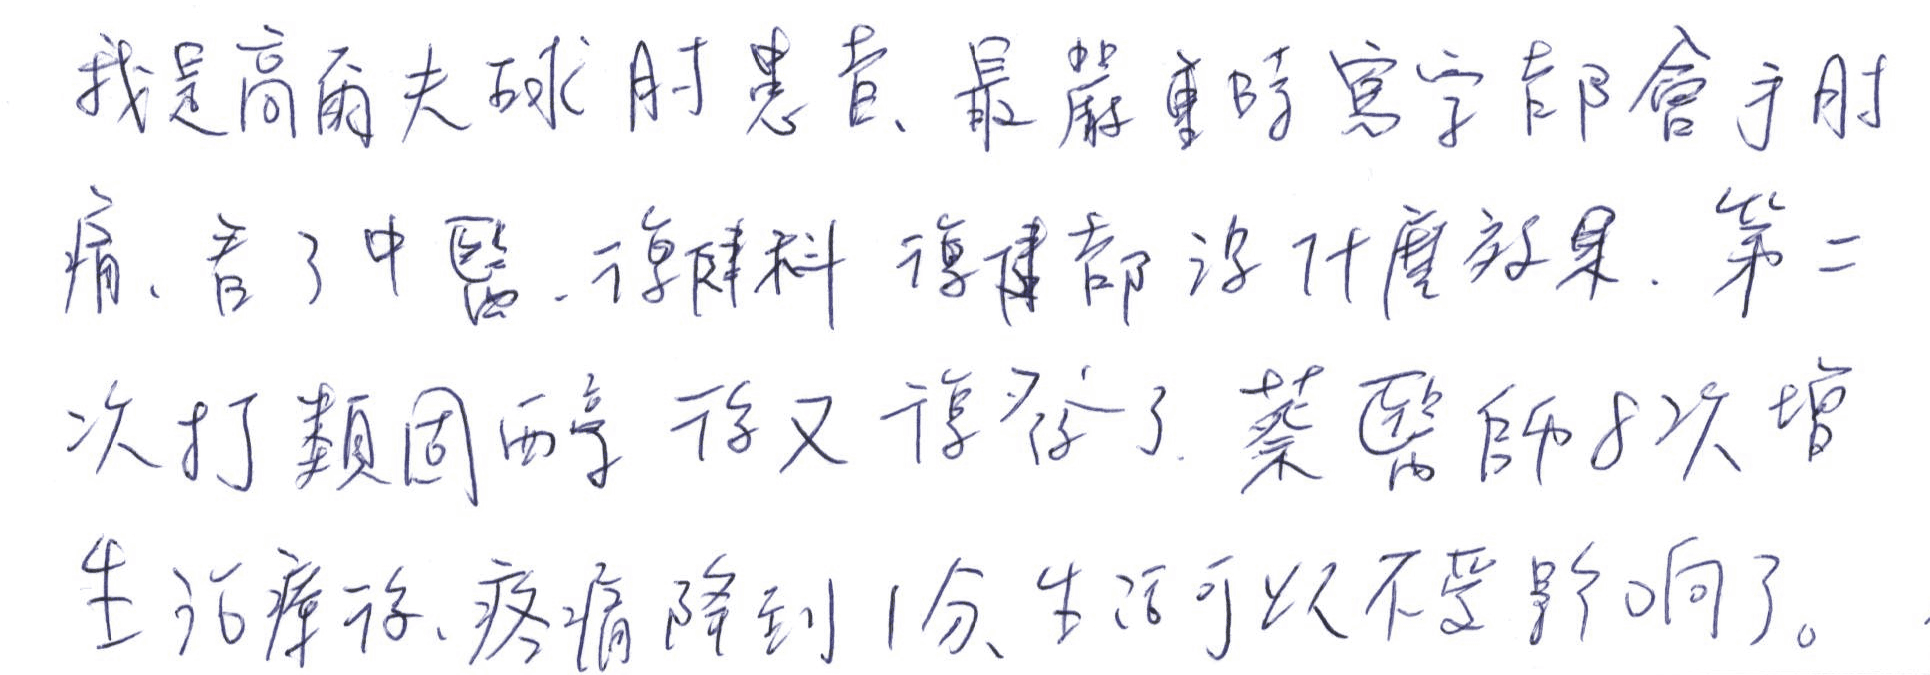 我是高爾夫球肘患者、最嚴重時寫字都會手肘
痛、看了中醫.復健科 復健都沒什麼效果.第二
次打類固醇 後又復發了.蔡醫師8次增
生治療後、疼痛降到1分、生活可以不受影响了。